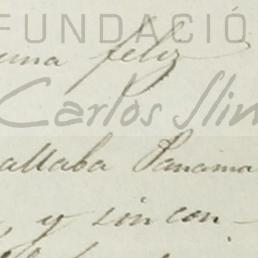 FUNDACIÓ
una feliz
Carlos Slim
allaba Panamá
y sin con-